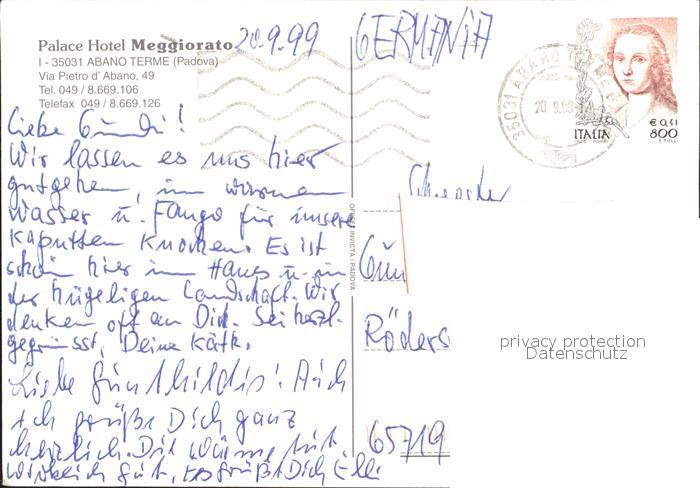 Palace Hotel Meggiorato
I - 35031 ABANO TERME (Padova)
Via Pietro d' Abano, 49
Tel. 049 / 8.669.106
Telefax 049 / 8.669.126
20.9.99
GERMANIA
35031 ABANO TERME
20.9.99
€ 0,41
ITALIA 800
Liebe Gundi!
Wir lassen es uns hier
gutgehen, im warmen
Wasser u. Fango für unsere
kaputten Knochen. Es ist
schön hier im Haus u. in
der hügeligen Landschaft. Wir
denken oft an Dich. Sei herzl.
gegrüsst, Deine Käth.
Liebe Gunthildis! Auch
ich grüße Dich ganz
herzlich. Die Wärme tut
wirklich gut, es grüßt Dich Elli
OFFSET INVICTA / PADOVA
Schwester
Gun
Röders
65719
privacy protection
Datenschutz